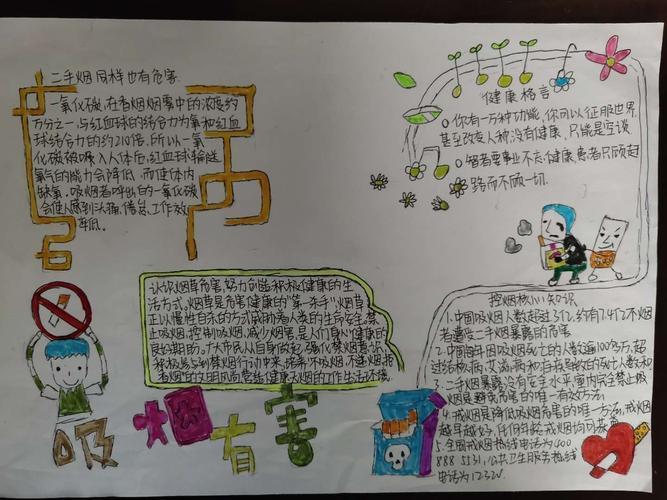 二手烟同样也有危害
一氧化碳,在香烟烟雾中的浓度约
万分之一,与红血球的结合力为氧和红血
球结合力的约210倍,所以一氧
化碳被吸入人体后,红血球输送
氧气的能力会降低,而使体内
缺氧,吸烟者呼出的一氧化碳
会使人感到头痛、倦怠、工作效
率低。
健康格言
你有一万种功能,你可以征服世界,
甚至改变人种,没有健康,只能是空谈
智者要事业不忘健康,愚者只顾赶
路而不顾一切.
认识烟草危害,努力创造积极健康的生
活方式,烟草是危害健康的"第一杀手"烟草
正以慢性自杀的方式威胁着人类的生命安全,禁
止吸烟,控制吸烟,减少烟害,是人们身心健康的
良好期盼。
控烟核心知识
1.中国吸烟人数超过3亿,约有7.4亿不吸烟
者遭受二手烟暴露的危害
2.中国每年因吸烟死亡的人数逾100万,超
过结核病,艾滋病和
3.二手烟暴露没有安全水平,室内完全禁止吸
烟是避免危害的唯一有效方法
4.戒烟是降低吸烟危害的唯一方法,戒烟
越早越好,任何年龄戒烟均可获益
5.全国戒烟热线电话为400
888 5531,公共卫生服务热线
电话为12320
吸烟有害